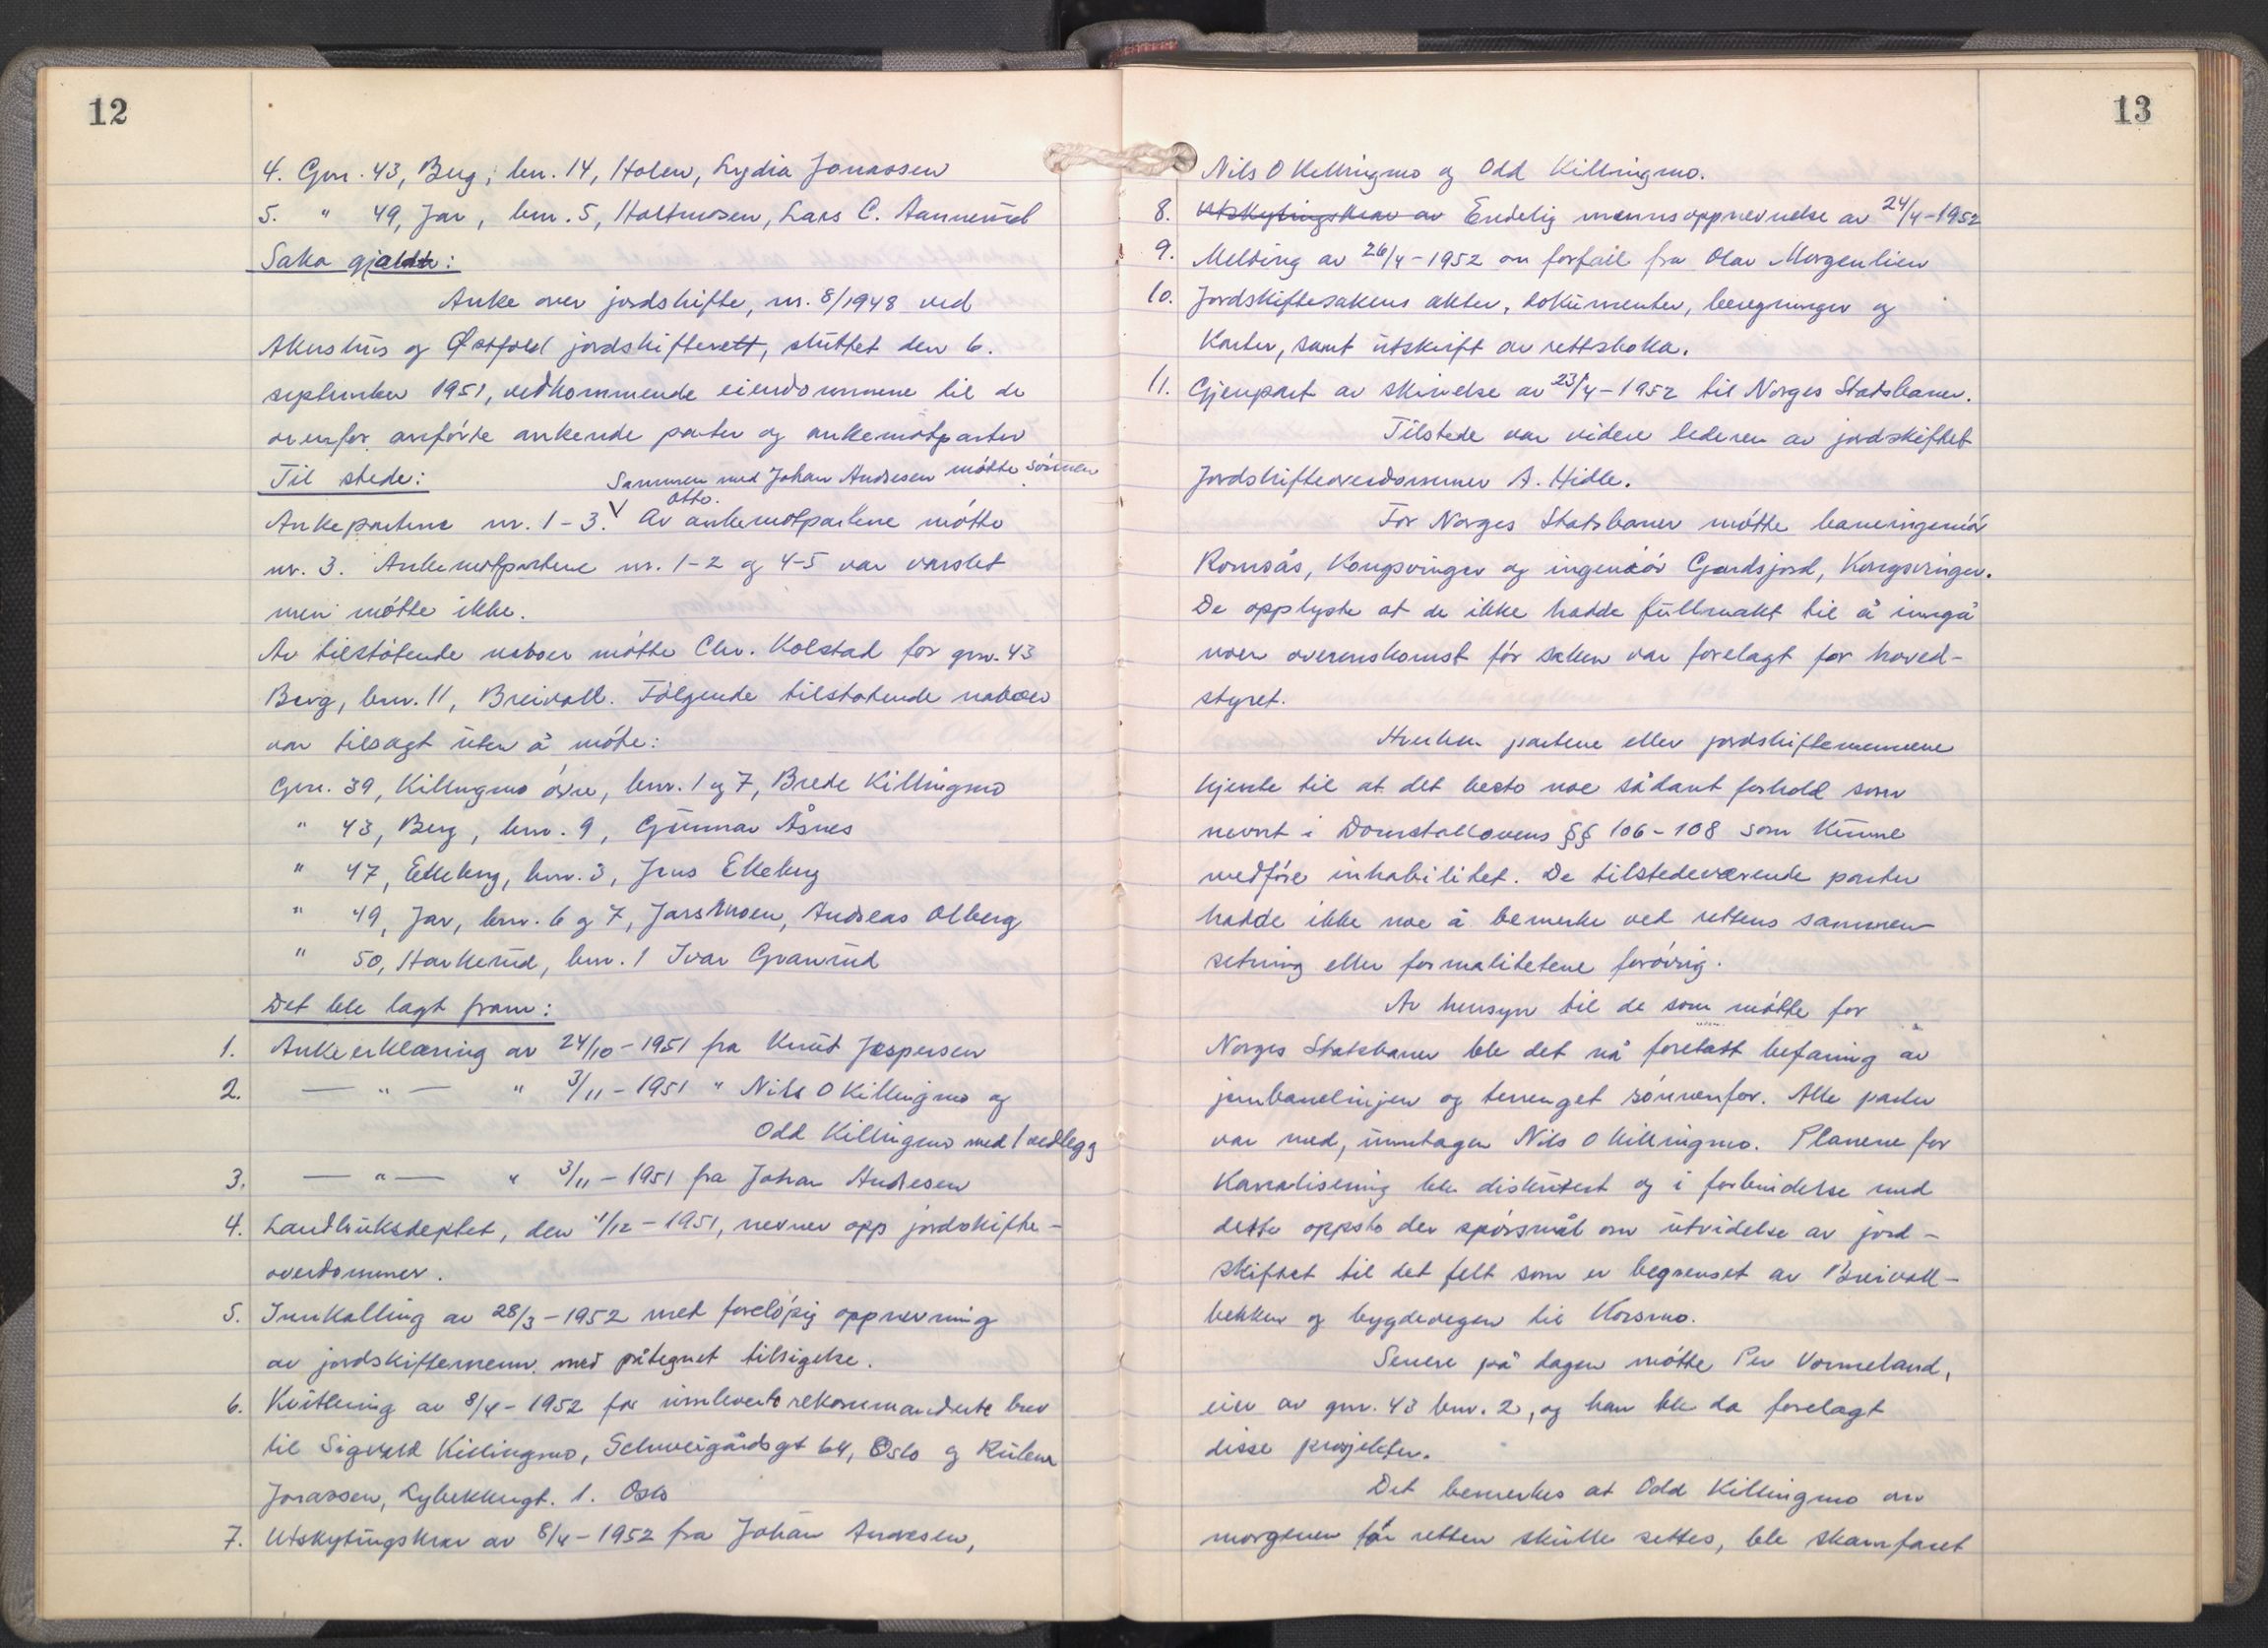 12
4. Gnr. 43, Berg, bnr. 14, Holen, Lydia Jonassen
5. " 49, Jar, bnr. 5, Holtmosen, Lars C. Aannerud
Saka gjaldt:
Anke over jordskifte, nr. 8/1948 ved
Akershus og Østfold jordskifterett, sluttet den 6.
september 1951, vedkommende eiendommene til de
ovenfor anførte ankende parter og ankemotparter
Til stede: Sammen med Johan Andresen møtte sønnen
Otto.
Ankepartene nr. 1-3. Av ankemotpartene møtte
nr. 3. Ankemotpartene nr. 1-2 og 4-5 var varslet
men møtte ikke.
Av tilstøtende naboer møtte Chr. Kolstad for gnr. 43
Berg, bnr. 11, Breivoll. Følgende tilstøtende naboer
var tilsagt uten å møte:
Gnr. 39, Killingmo øvre, bnr. 1 og 7, Brede Killingmo
" 43, Berg, bnr. 9, Gunnar Åsnes
" 47, Ekeberg, bnr. 3, Jens Ekeberg
" 49, Jar, bnr. 6 og 7, Jarsmosen, Andreas Olberg
" 50, Harkerud, bnr. 1 Ivar Granrud
Det ble lagt fram:
1. Ankeerklæring av 24/10-1951 fra Knut Jespersen
2. — " — " 3/11-1951 " Nils O Killingmo og
Odd Killingmo med 1 vedlegg
3. — " — " 3/11-1951 fra Johan Andresen
4. Landbruksdeptet, den 1/12-1951, nevner opp jordskifte-
overdommer.
5. Innkalling av 28/3-1952 med foreløpig oppnevning
av jordskiftemenn med påtegnet tilsigelse.
6. Kvittering av 8/4-1952 for innleverte rekommanderte brev
til Sigvald Killingmo, Schweigårdsgt 64, Oslo og Ruben
Jonassen, Lybekkergt. 1. Oslo
7. Utskytingskrav av 8/4-1952 fra Johan Andresen,
13
Nils O Killingmo og Odd Killingmo.
8. Utskytingskrav av Endelig mannsoppnevnelse av 24/4-1952
9. Melding av 26/4-1952 om forfall fra Olav Morgenlien
10. Jordskiftesakens akter, dokumenter, beregninger og
karter, samt utskrift av rettsboka.
11. Gjenpart av skrivelse av 23/4-1952 til Norges Statsbaner.
Tilstede var videre lederen av jordskiftet
Jordskifteoverdommer A. Hidle.
For Norges Statsbaner møtte baneingeniør
Romsås, Kongsvinger og ingeniør Gardsjord, Kongsvinger.
De opplyste at de ikke hadde fullmakt til å inngå
noen overenskomst før saken var forelagt for hoved-
styret.
Hverken partene eller jordskiftemennene
kjente til at det besto noe sådant forhold som
nevnt i Domstollovens §§ 106-108 som kunne
medføre inhabilitet. De tilstedeværende parter
hadde ikke noe å bemerke ved rettens sammen-
setning eller formalitetene forøvrig.
Av hensyn til de som møtte for
Norges Statsbaner ble det nå foretatt befaring av
jernbanelinjen og terrenget sønnenfor. Alle parter
var med, unntagen Nils O Killingmo. Planene for
kanalisering ble diskutert og i forbindelse med
dette oppsto der spørsmål om utvidelse av jord-
skiftet til det felt som er begrenset av Breivoll-
bekken og bygdevegen til Korsmo.
Senere på dagen møtte Per Vormeland,
eier av gnr. 43 bnr. 2, og han ble da forelagt
disse prosjekter.
Det bemerkes at Odd Killingmo om
morgenen før retten skulle settes, ble skamfaret